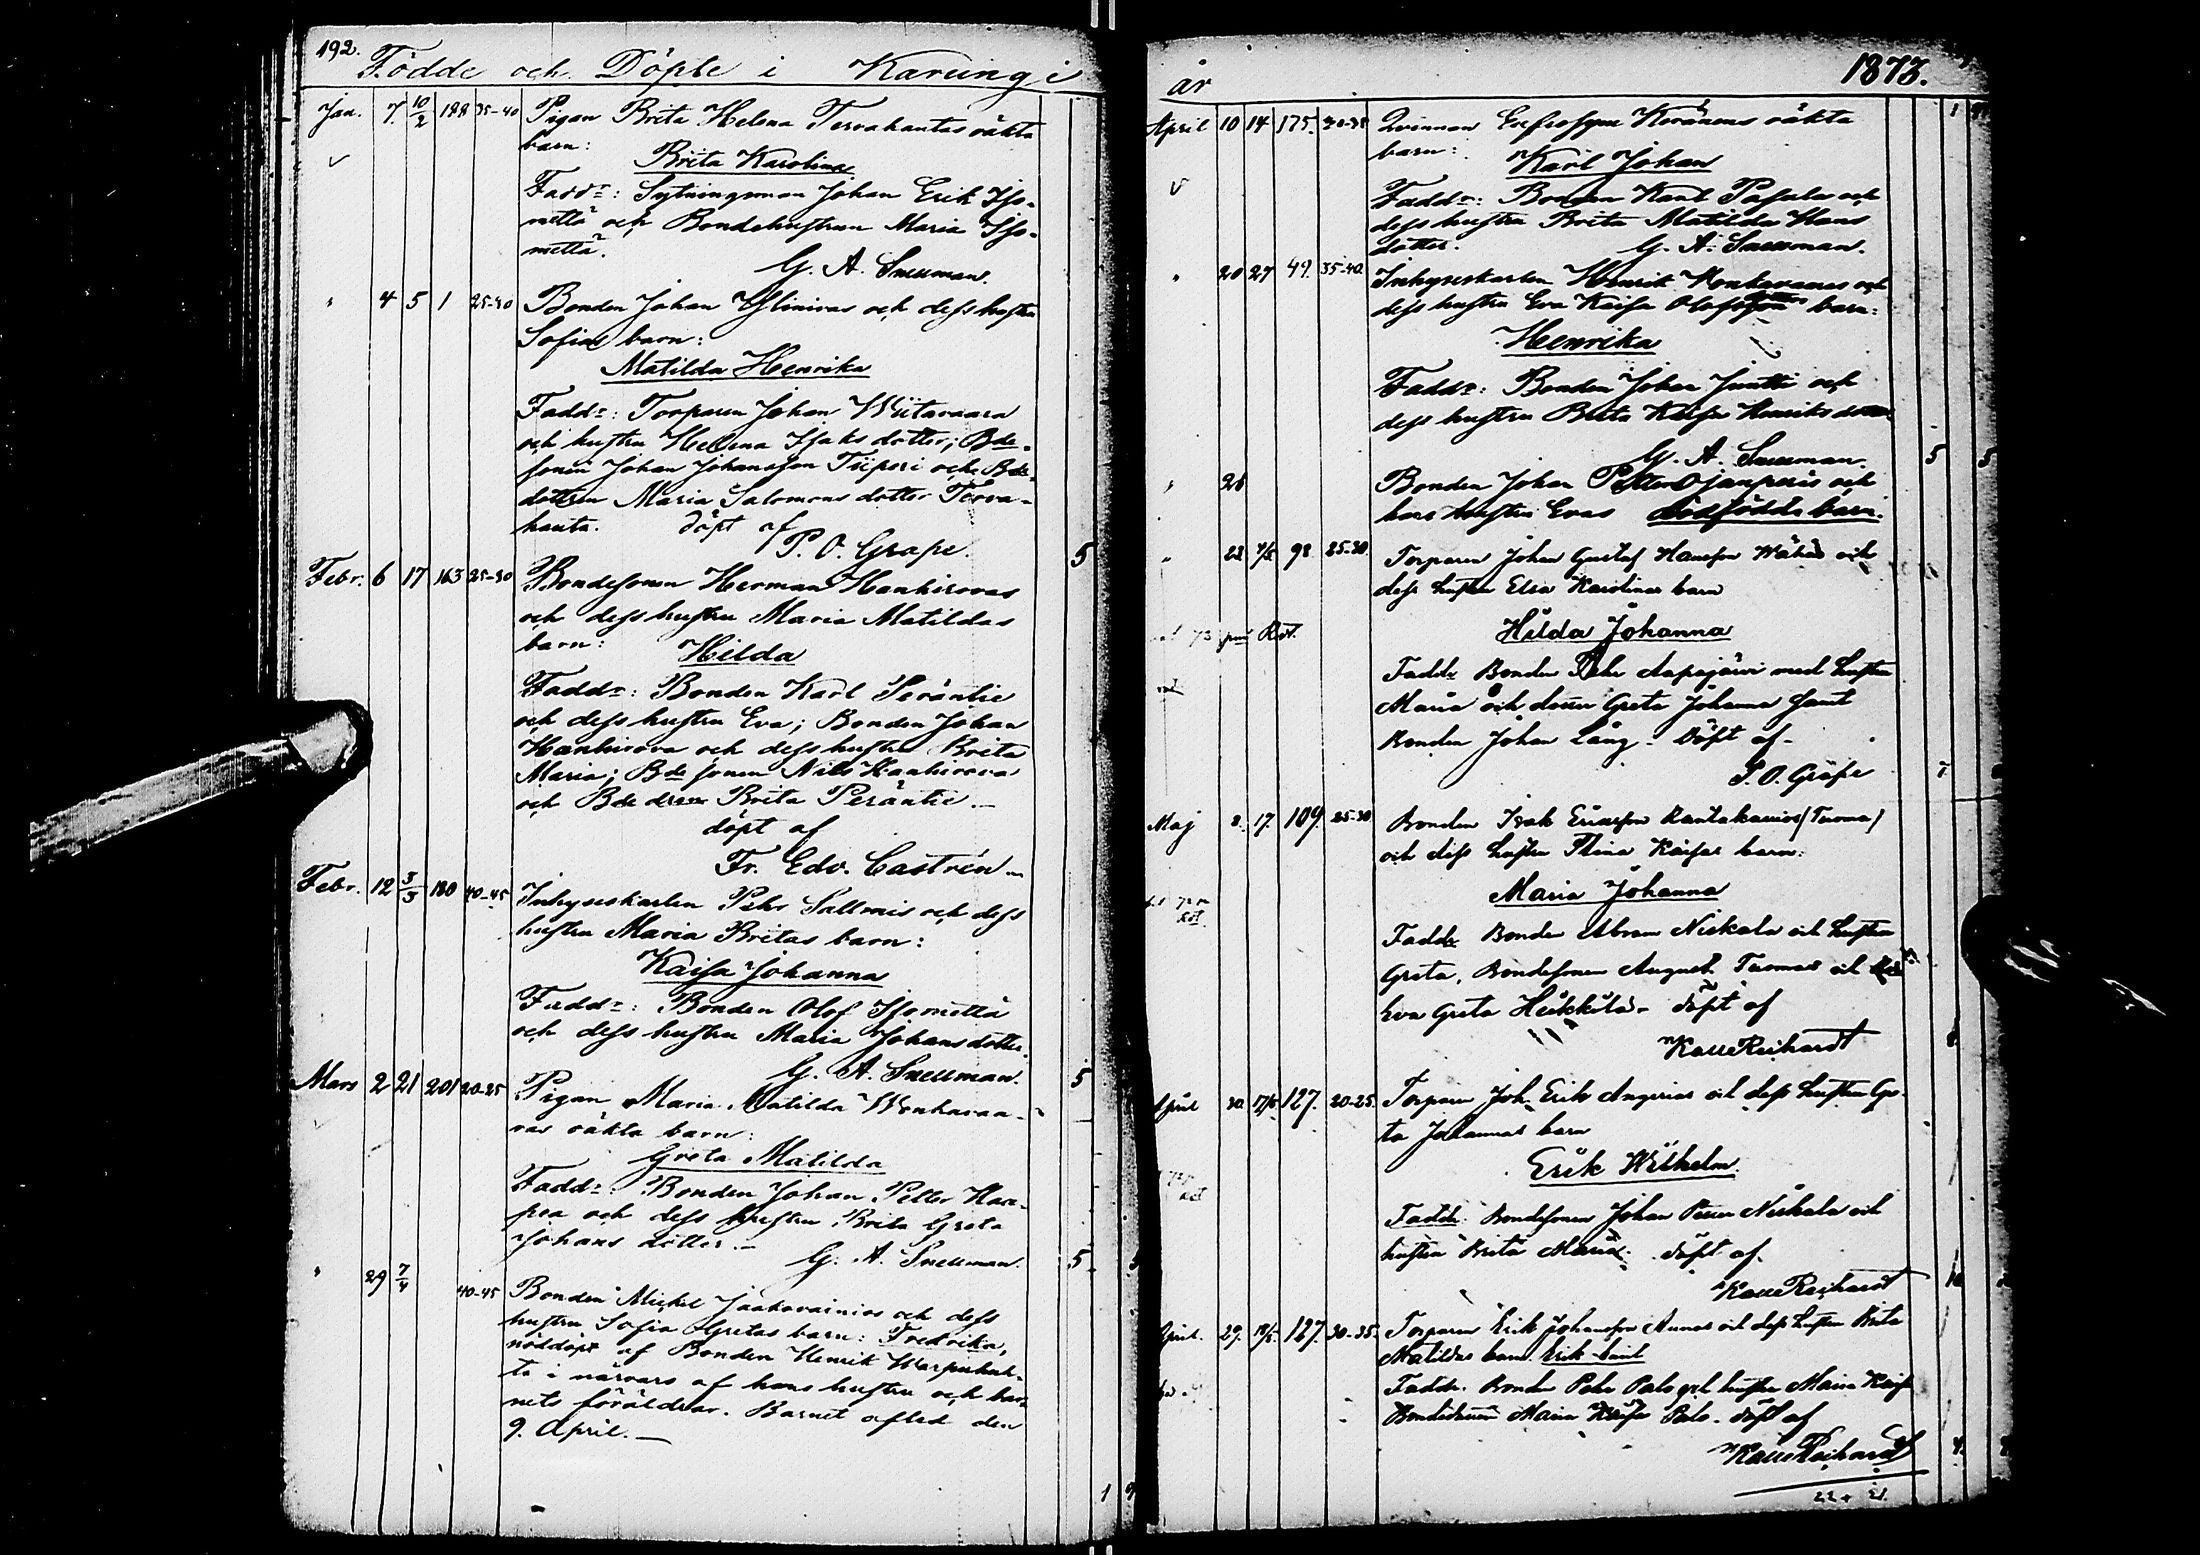 192.
Födde och Döpte i Karungi
Jan. 7. 10/2 188 35-40 Pigan Brita Helena Tervahautas oäkta
barn:
Brita Karolina
Fadd:r: Sytningsman Johan Erik Iso-
mettä och Bondehustrun Maria Iso-
mettä.
G. A. Snellman.
" 4 5 1 25-30 Bonden Johan Ylinivas och dess hustru
Sofias barn:
Matilda Henrika
Fadd:r: Torparen Johan Wiitavaara
och hustru Helena Isaks dotter; Bde-
sonen Johan Johansson Tiiperi och Bde-
dottren Maria Salomons dotter Terva-
hauta. döpt af
P. O. Grape. 5
Febr. 6 17 163 25-30 Bondesonen Herman Hanhirovas
och dess hustru Maria Matildas
barn:
Hilda
Fadd:r: Bonden Karl Peräntie
och dess hustru Eva; Bonden Johan
Hanhirova och dess hustru Brita
Maria; Bde sonen Nils Hanhirova
och Bde Brita Peräntie.—
döpt af
Fr. Edv. Castrén—
Febr. 12 3/3 180 40-45 Inhyseskarlen Pehr Sallmis och dess
hustru Maria Britas barn:
Kaisa Johanna
Fadd:r: Bonden Olof Isomettä
och dess hustru Maria Johansdotter.
G. A. Snellman. 5
Mars 2 21 201 20-25 Pigan Maria Matilda Wonkavaa-
ras oäkta barn:
Greta Matilda
Fadd:r: Bonden Johan Petter Haa-
pea och dess hustru Brita Greta
Johans dotter.—
G. A. Snellman. 5
" 29 7/4 40-45 Bonden Mickel Jaakovainios och dess
hustru Sofia Gretas barn: Fredrika,
nöddöpt af Bonden Henrik
i närvaro af hans hustru och bar-
nets föräldrar. Barnet afled den
9. April.—
år 1873.
April 10 14 175. 30-35 Qvinnan Eufrosyne Keränens oäkta
barn:
Karl Johan
Fadd:r: Bonden Karl och
dess hustru Brita Matilda Hans
dotter.
G. A. Snellman.
" 20 27 49. 35-40. Inhyseskarlen Henrik Wonkavaaras och
dess hustru Eva Kaisa barn:
Henrika
Fadd:r: Bonden Johan Juntti och
dess hustru Brita Kaisa Henriks dotter
G. A. Snellman. 5
" 26 Bonden Johan Petter Ojanperäs och
hans hustru Evas dödfödda barn.
" 22 4/5 98 25-30. Torparen Johan Gustaf Hansson och
dess hustru Elsa Karolinas barn
Hilda Johanna
Fadd:r Bonden Pehr Aapajärvi med hustru
Maria och dotter Greta Johanna samt
Bonden Johan Lång. Döpt af
P. O. Grape
Maj 2. 17. 109. 25-30 Bonden Isak Ericsson Rantakauris /Tuoma/
och dess hustru Stina Kaisas barn:
Maria Johanna
Fadd:r Bonden Abram Niskala och hustru
Greta, Bondesonen August Tuomas och
Eva Greta Heikkilä. döpt af
Kalle Reihardt
April 30. 17/5 127. 20-25. Torparen Joh. Erik Angerias och dess hustru Gre-
ta Johannas barn
Erik Wilhelm
Fadd:r: Bondesonen Johan Petter Niskala och
hustru Brita Maria. döpt af
Kalle Reihardt
April. 29. 127. 30-35. Torparen Erik Johansson Annas och dess hustru Brita
Matildas barn. Erik Emil
Fadd:r. Bonden Pehr Palo och hustru Maria Kaisa
Maria Kaisa Palo. döpt af
Kalle Reihardt